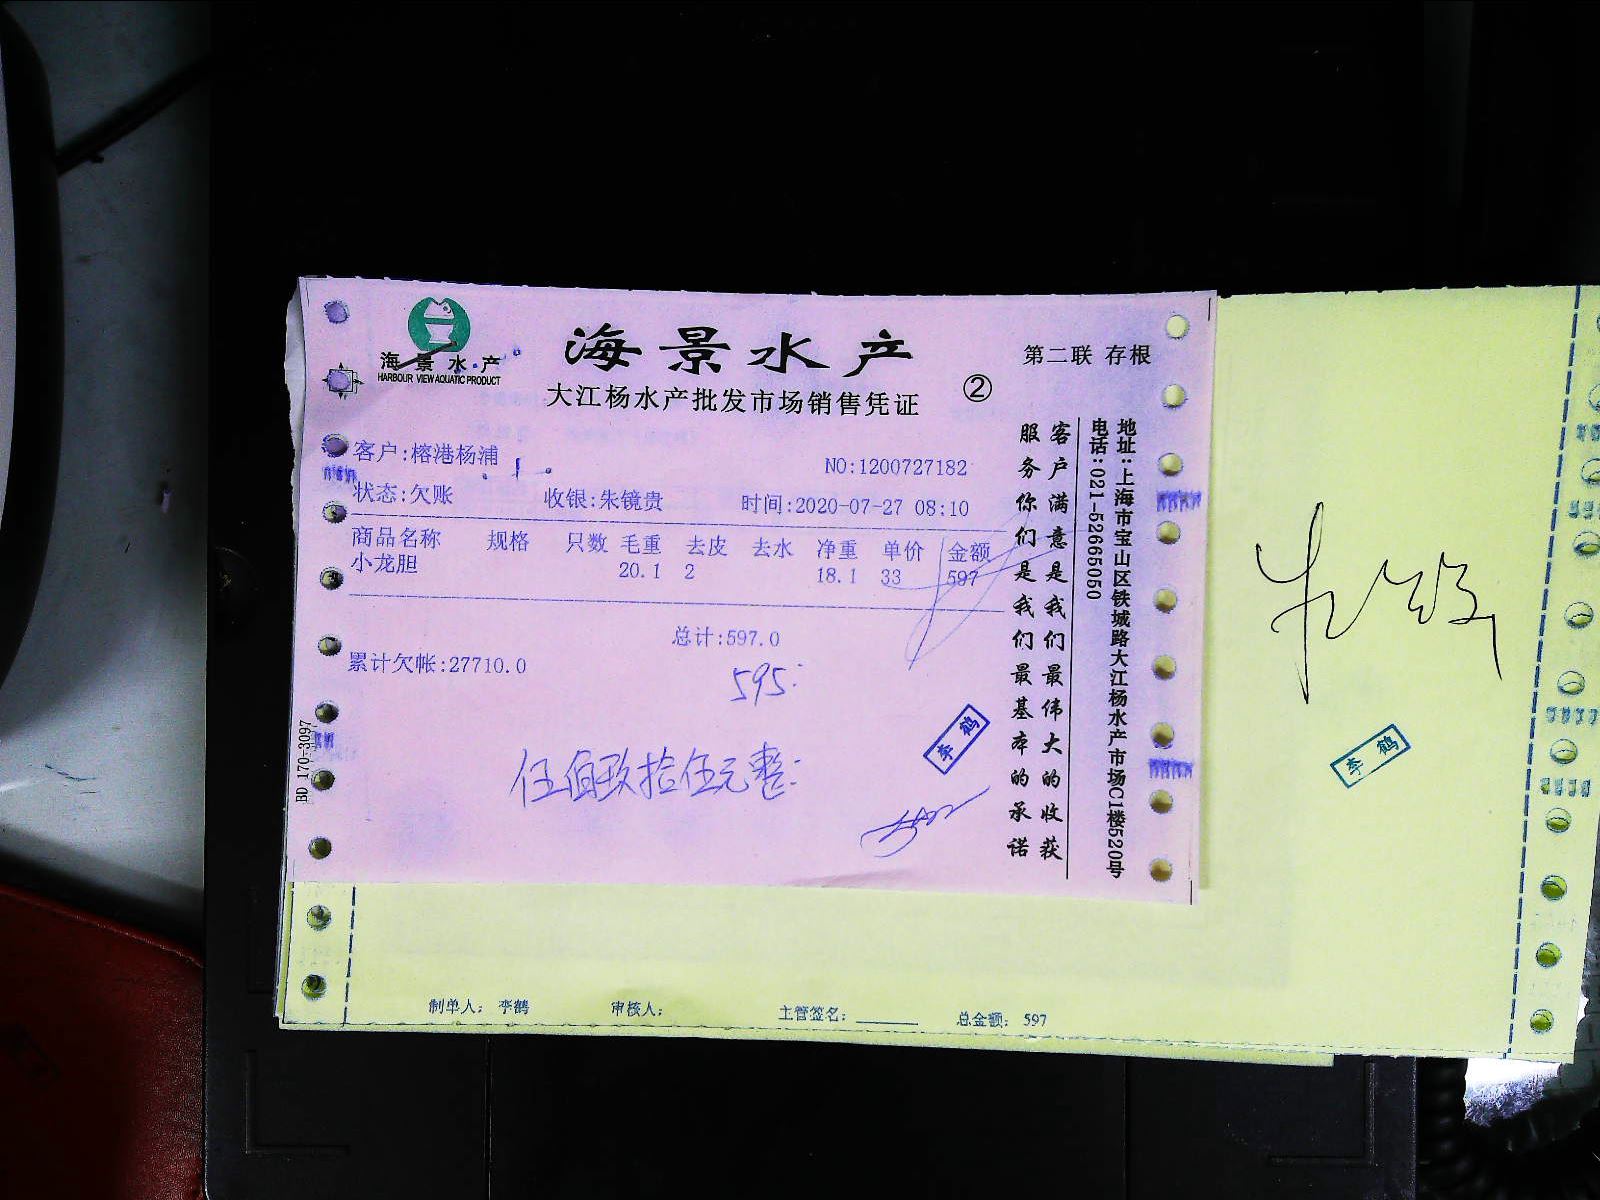 海景水产
HARBOUR VIEW AQUATIC PRODUCT
海景水产
大江杨水产批发市场销售凭证
②
第二联 存根
客户:榕港杨浦
NO:1200727182
状态:欠账 收银:朱镜贵 时间:2020-07-27 08:10
商品名称 规格 只数 毛重 去皮 去水 净重 单价 金额
小龙胆 20.1 2 18.1 33 597
总计:597.0
累计欠帐:27710.0
595
伍佰玖拾伍元整
李鹤
客户满意是我们最伟大的收获
服务你们是我们最基本的承诺
地址:上海市宝山区铁城路大江杨水产市场C1楼520号
电话:021-52665050
BD 170-3097
李鹤
制单人: 李鹤 审核人: 主管签名: 总金额: 597